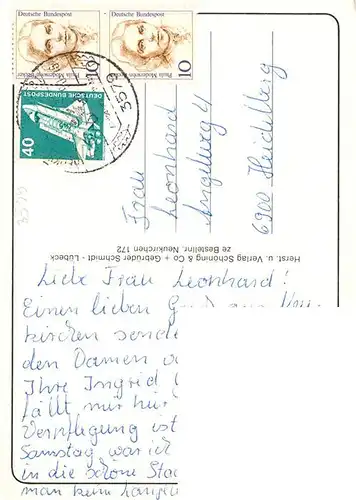 Deutsche Bundespost
Deutsche Bundespost
Paula Modersohn-Becker
10
10
DEUTSCHE BUNDESPOST
40
3579
Frau
Leonhard
6900 Heidelberg
Herst. u. Verlag Schöning & Co + Gebrüder Schmidt - Lübeck
ze Bestellnr. Neukirchen 172
Liebe Frau Leonhard!
Einen lieben
kirchen
den Damen
Ihre Ingrid
fällt mir hier
Verpflegung ist
Samstag war ich
in die schöne
man kann